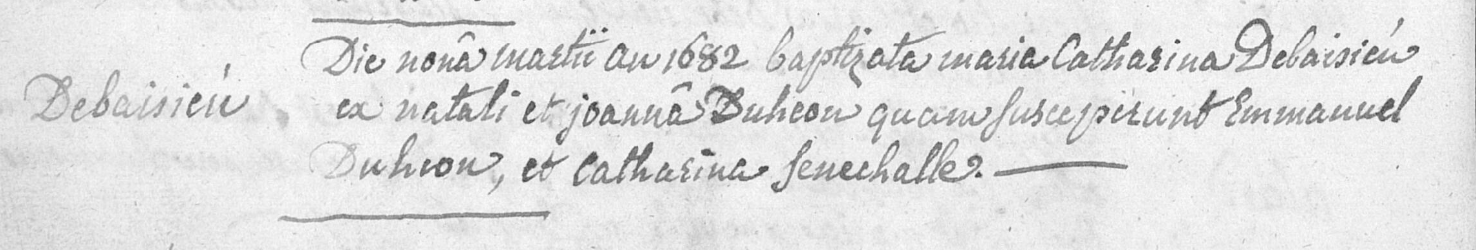 Die nonâ martii an 1682 baptizata maria Catharina Debaisieú
Debaisieú
ex natali et joannâ Duheon quam susceperunt Emmanuel
Duheon, et Catharina senechalle.